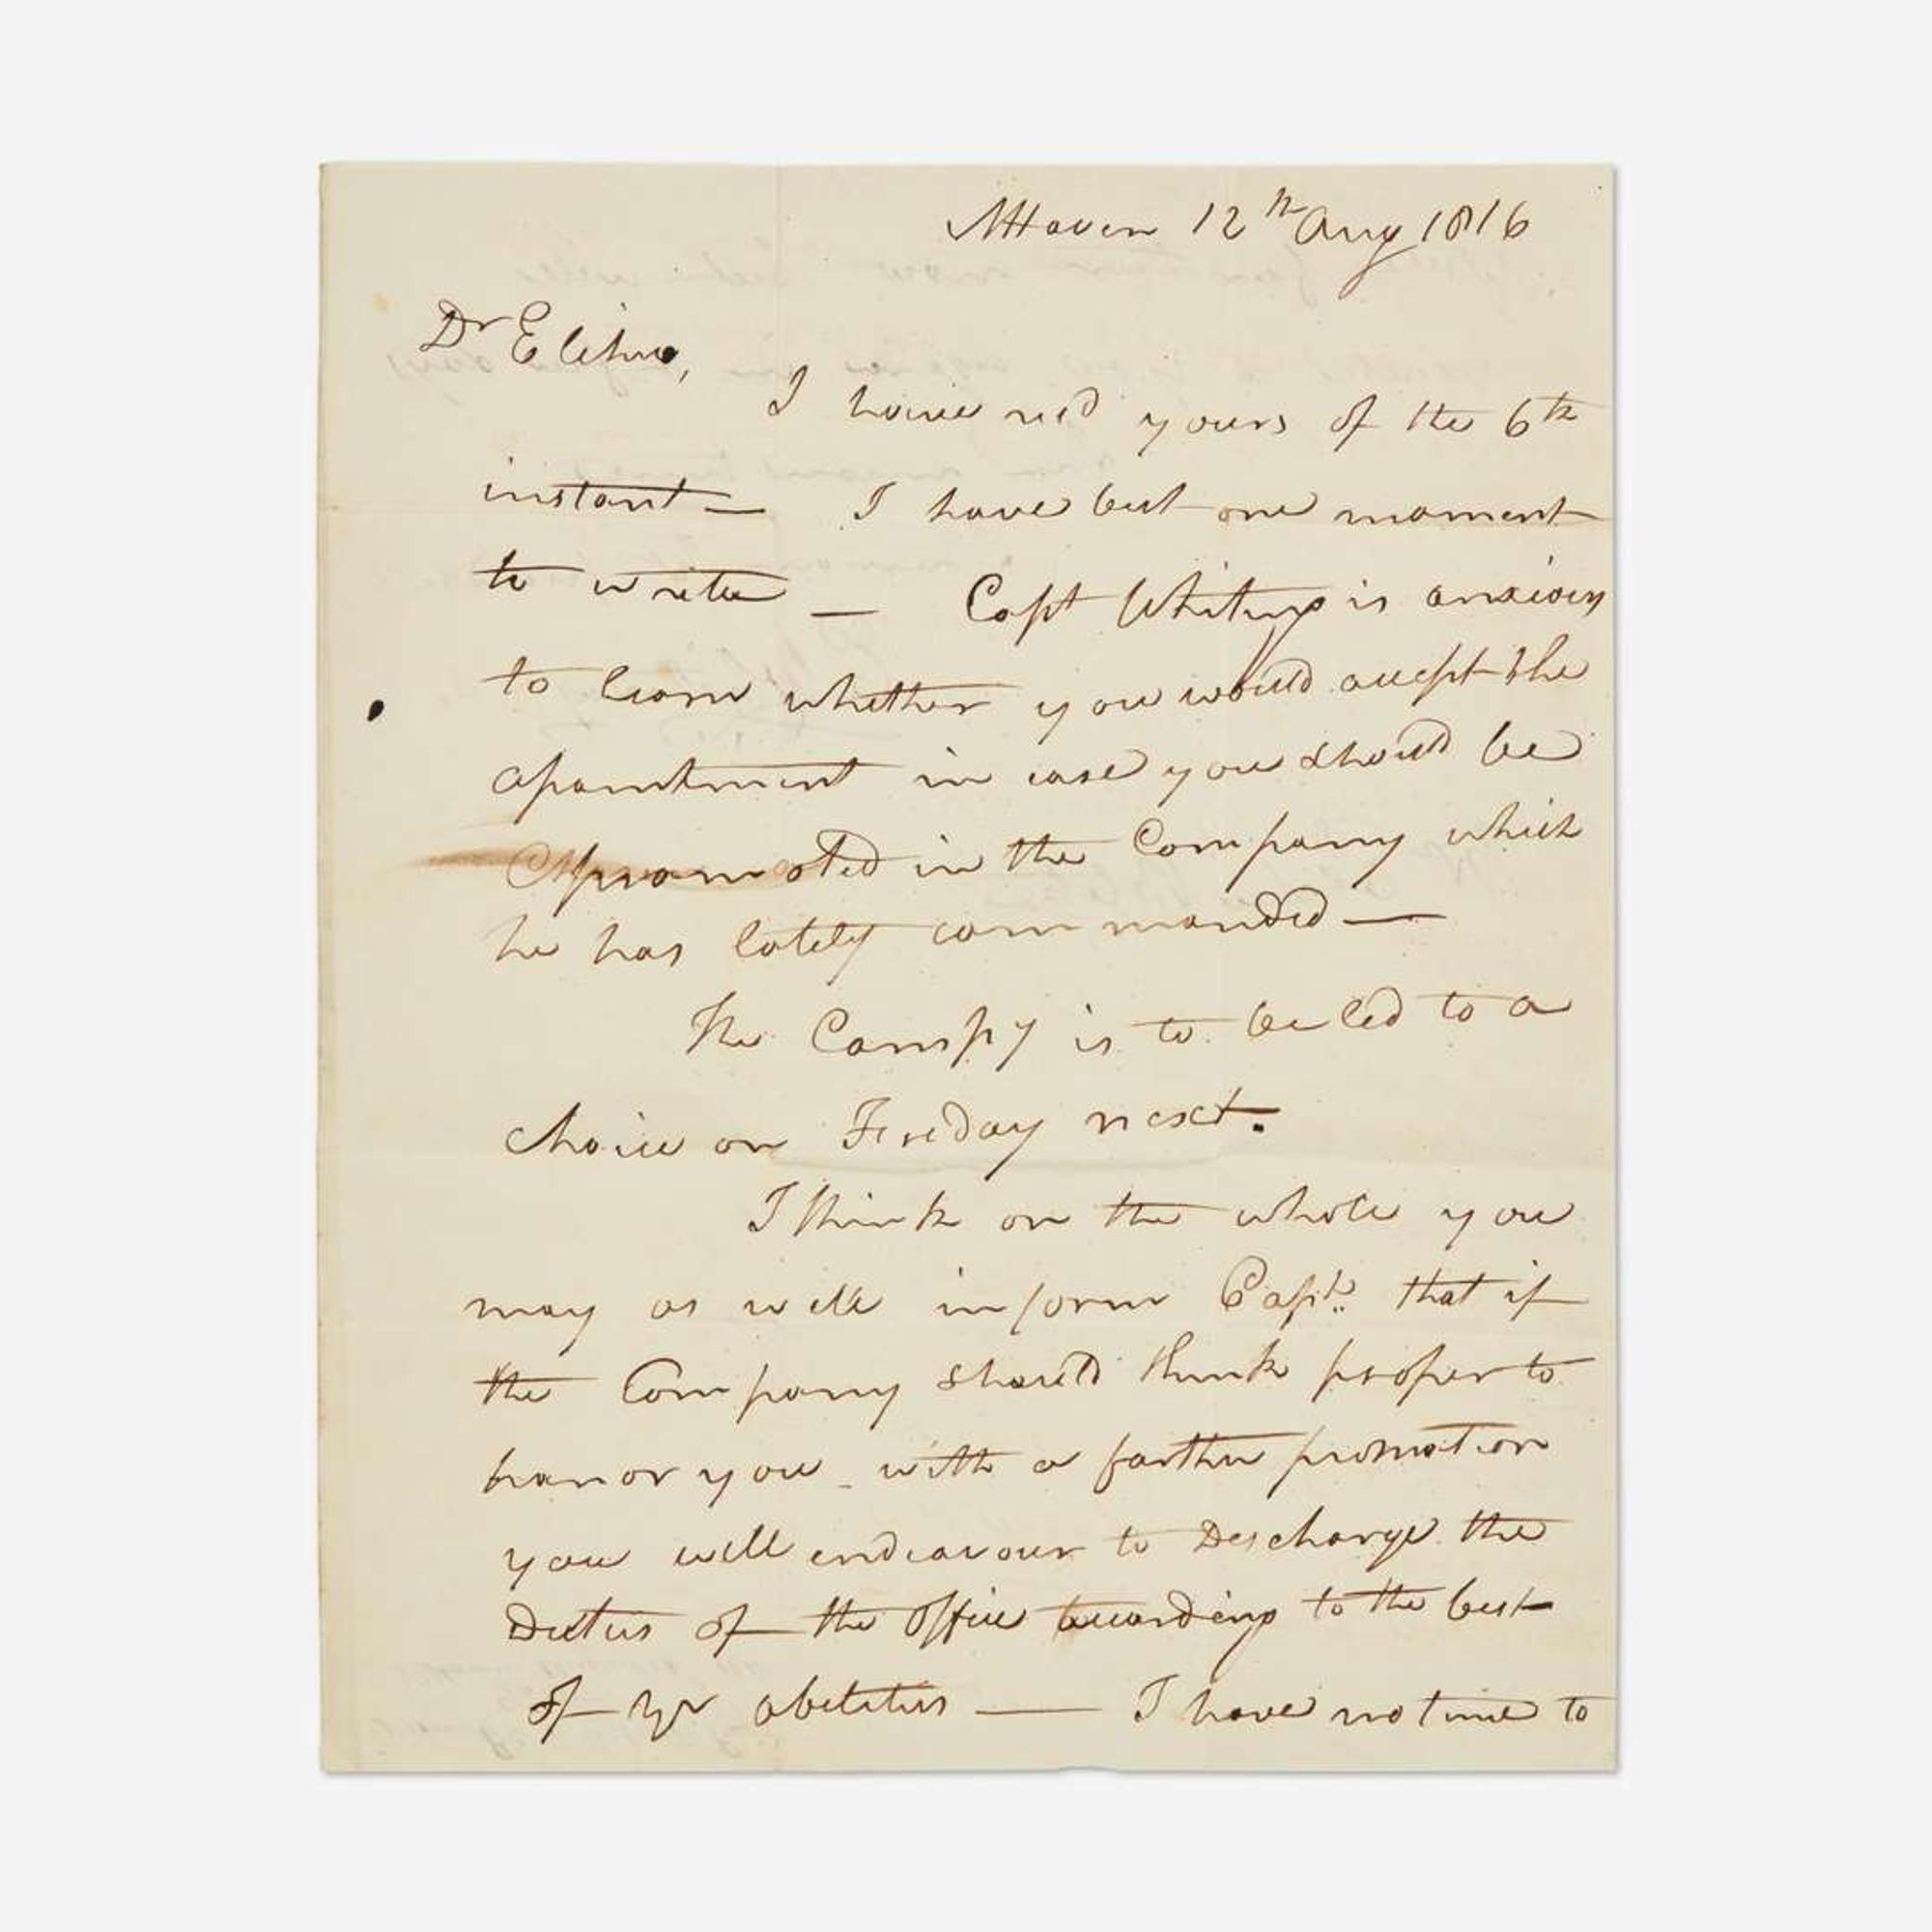 NHaven 12th Aug 1816
Dr Elihu,
I have recd yours of the 6th
instant — I have but one moment
to write — Capt Whiting is anxious
to learn whether you would accept the
apointment in case you should be
promoted in the Company which
he has lately commanded —
The Compy is to be led to a
choice on Friday next.
I think on the whole you
may as well inform Capt. that if
the Company should think proper to
honor you with a farther promotion
you will endeavour to Discharge the
Duties of the Office according to the best
of yr abilities — I have no time to